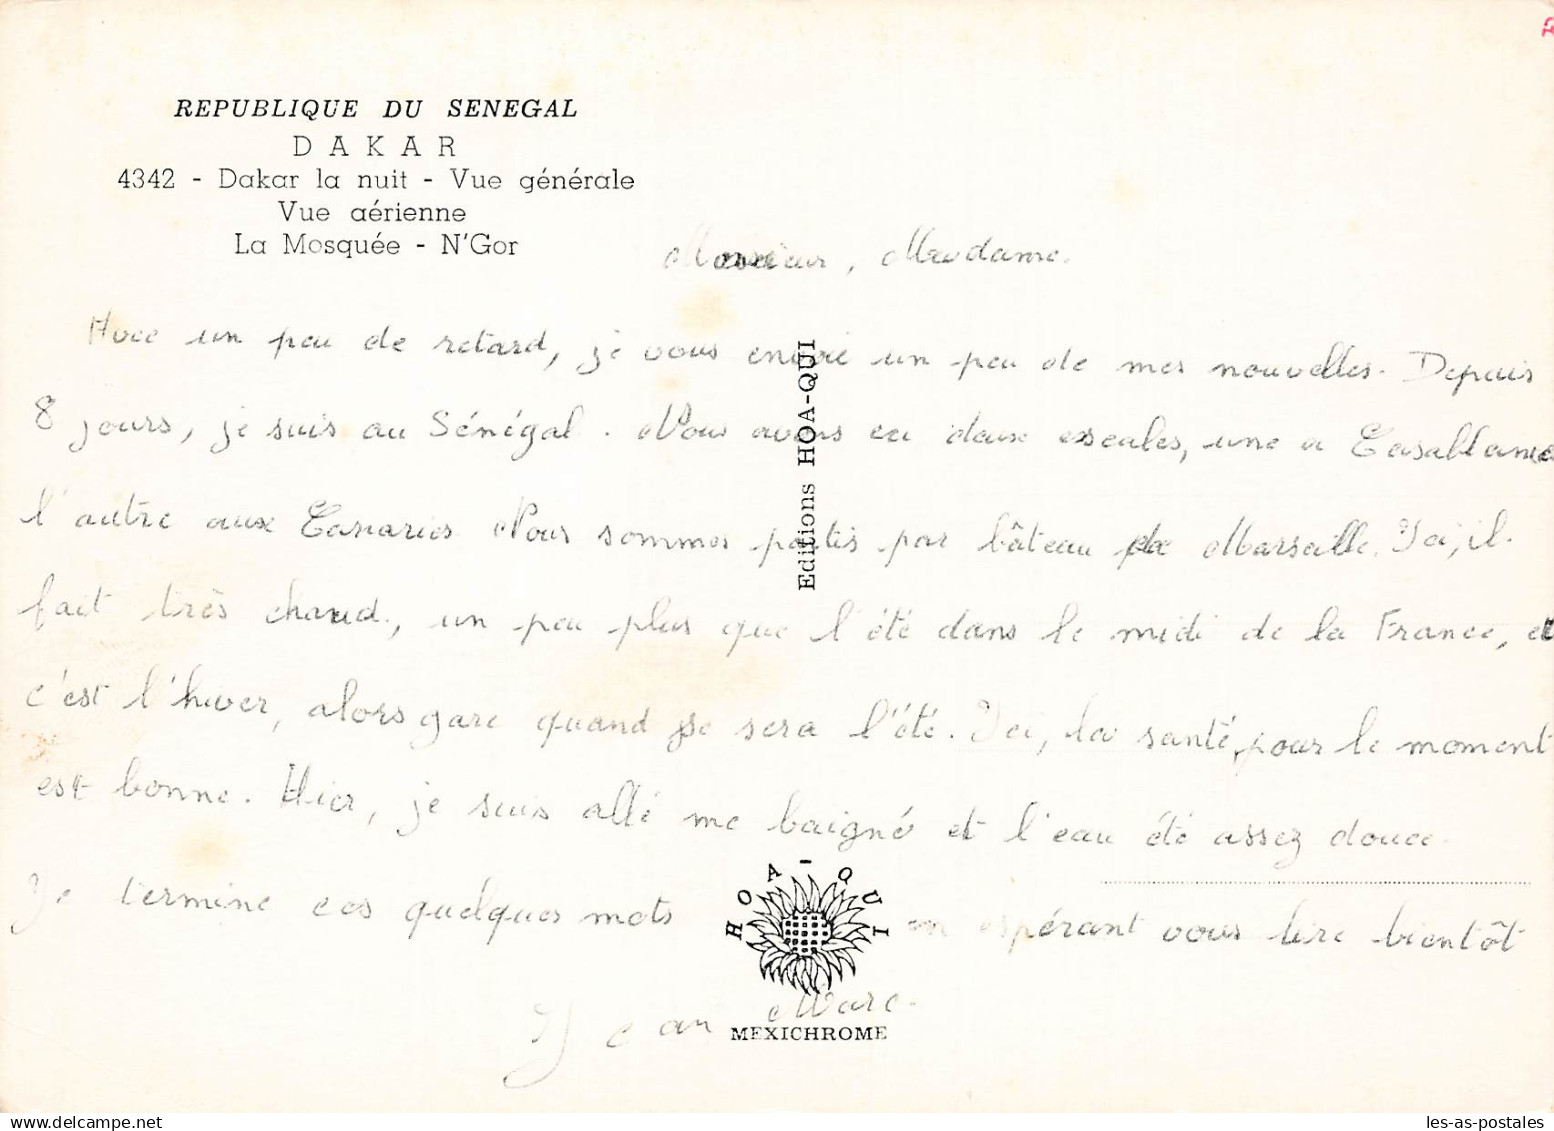 REPUBLIQUE DU SENEGAL
DAKAR
4342 - Dakar la nuit - Vue générale
Vue aérienne
La Mosquée - N'Gor
Monsieur, Madame.
Avec un peu de retard, je vous envoie un peu de mes nouvelles. Depuis
8 jours, je suis au Sénégal. Nous avons eu deux escales, une a Casablanca
l'autre aux Canaries Nous sommes partis par bâteau de Marseille. Ici, il
fait très chaud, un peu plus que l'été dans le midi de la France, et
c'est l'hiver, alors gare quand se sera l'été. Ici, la santé, pour le moment
est bonne. Hier, je suis allé me baigné et l'eau été assez douce.
Je termine ces quelques mots en espérant vous lire bientôt
Jean Marc.
Editions HOA-QUI
HOA-QUI
MEXICHROME
les-as-postales